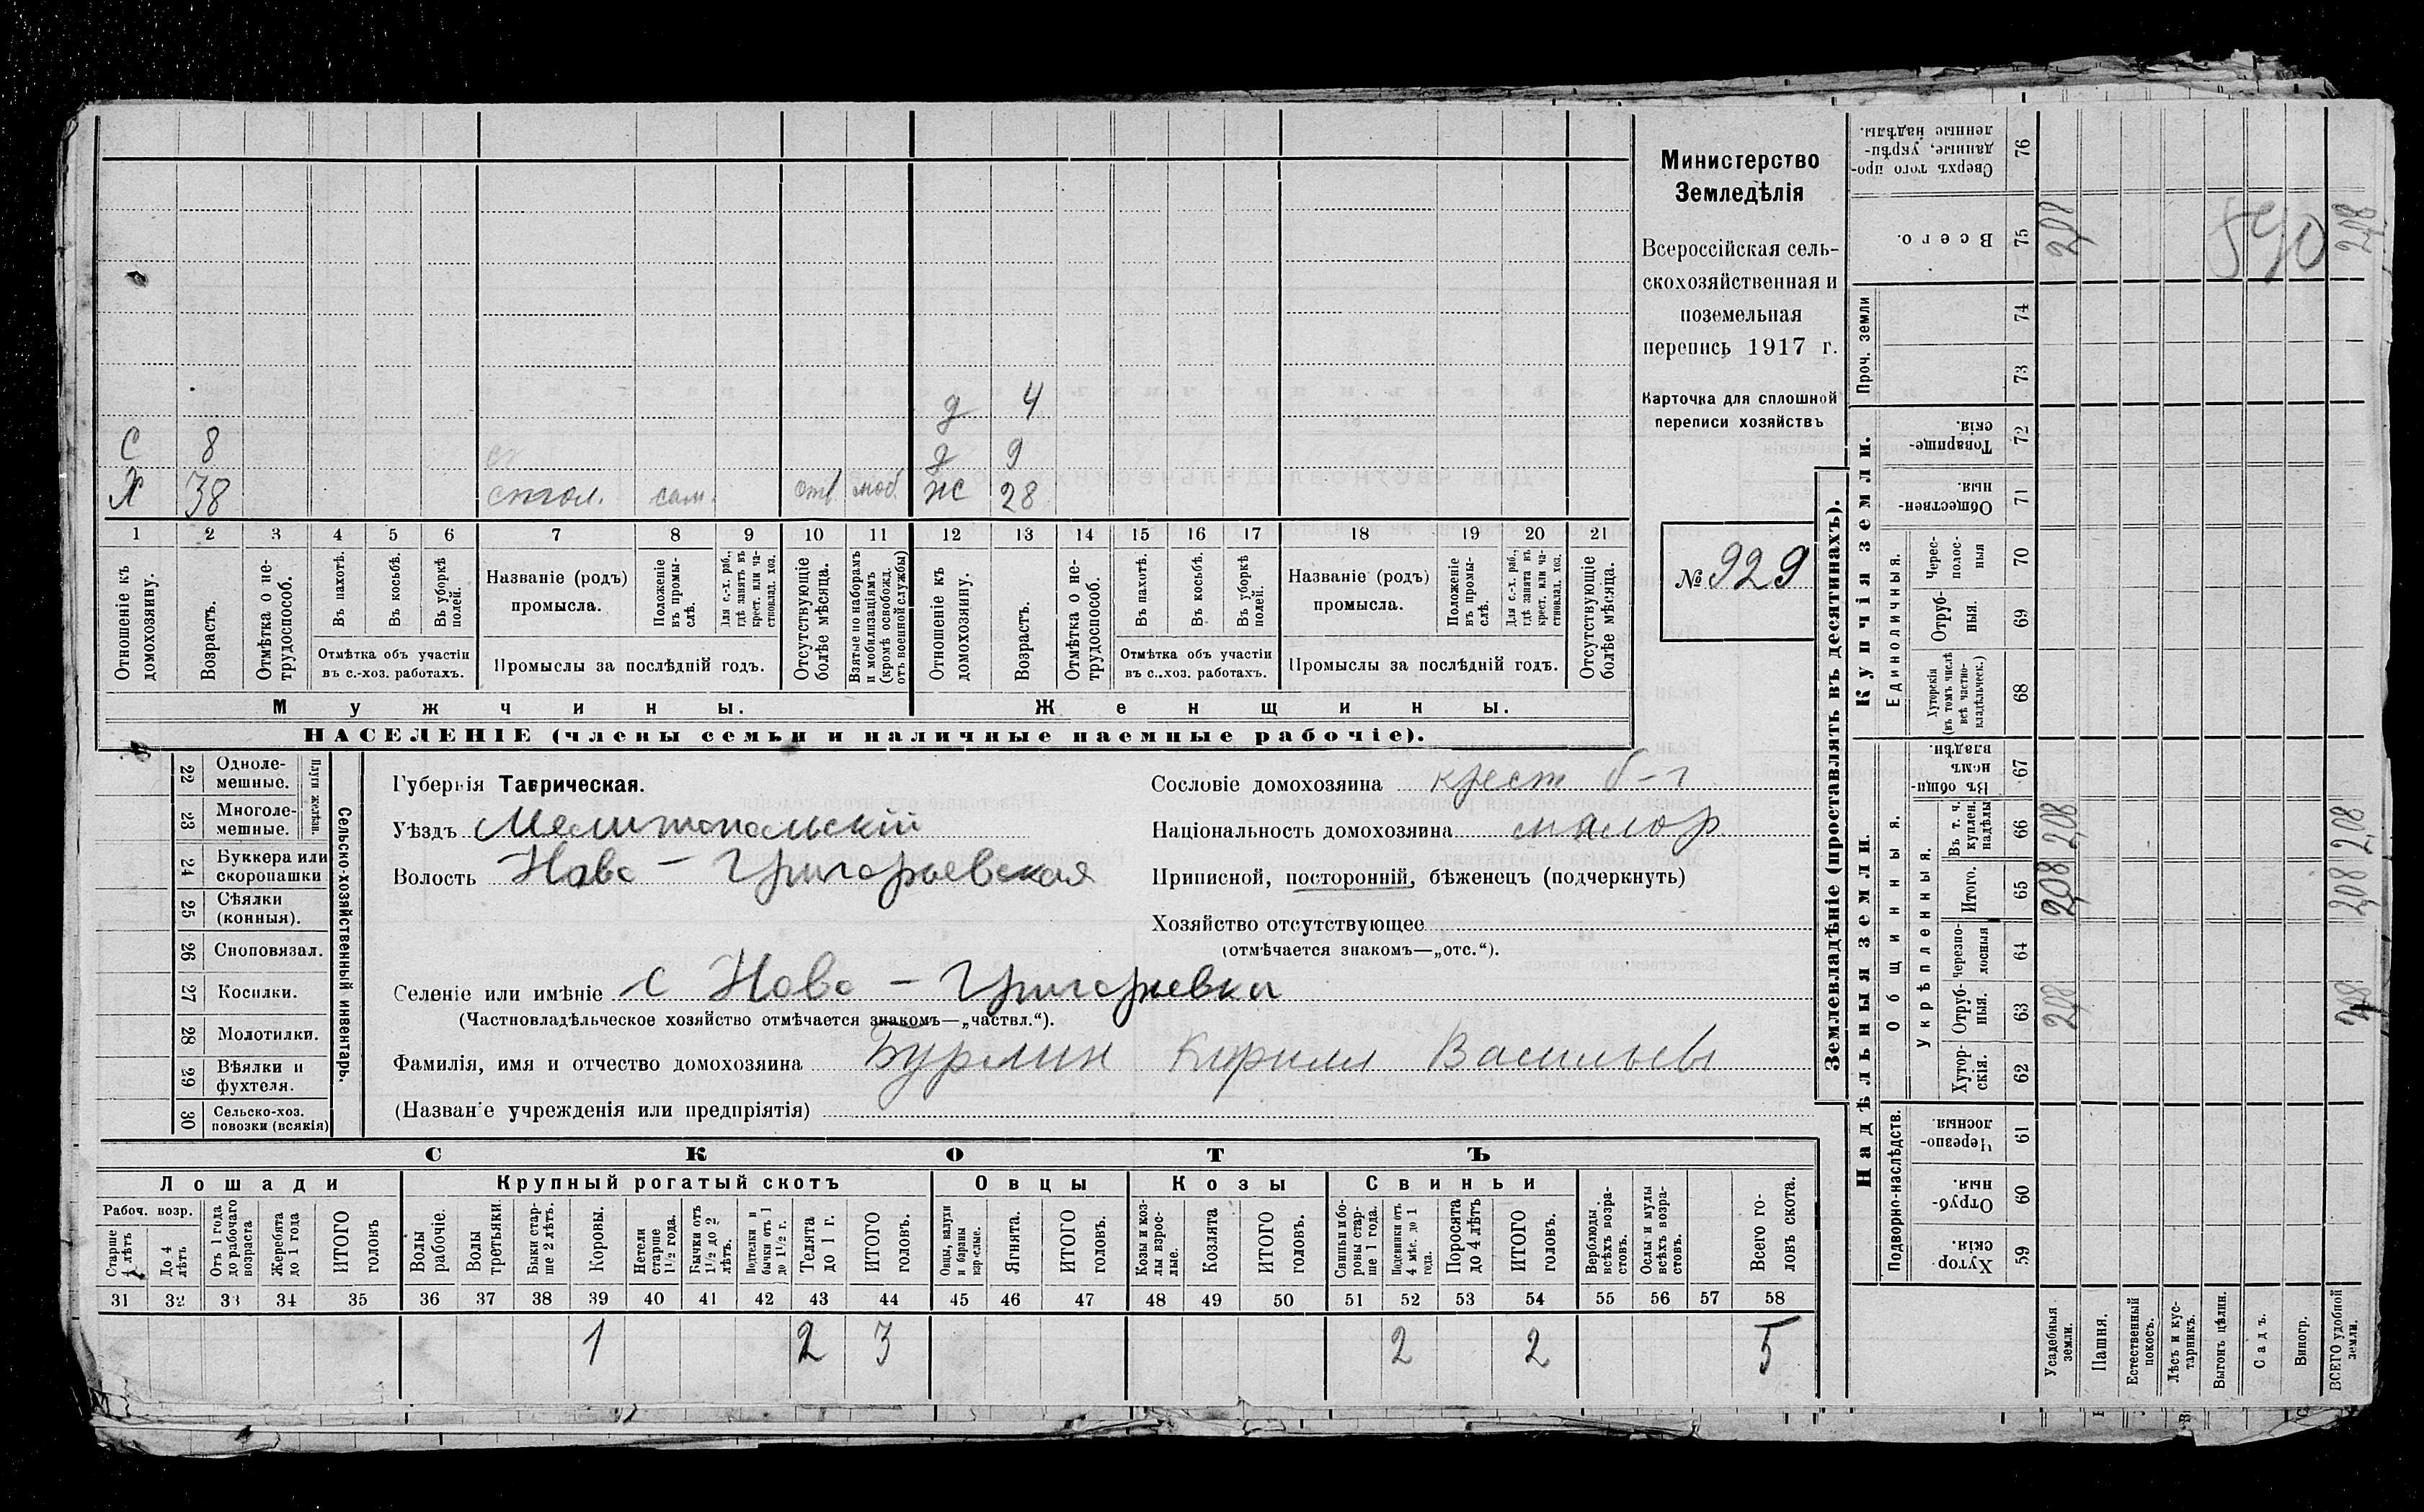 Министерство
Земледѣлія
Всероссійская сель-
скохозяйственная и
поземельная
перепись 1917 г.
Карточка для сплошной
переписи хозяйствъ
№ 929
д 4
С 8 д 9
Х 38 стол. сам. отв моб. ж 28
1 2 3 4 5 6 7 8 9 10 11 12 13 14 15 16 17 18 19 20 21
Отношеніе къ домохозяину.
Возрастъ.
Отмѣтка о не-трудоспособ.
Въ пахотѣ.
Въ косьбѣ.
Въ уборкѣ полей.
Отмѣтка объ участіи
въ с.-хоз. работахъ.
Названіе (родъ)
промысла.
Положеніе въ промы-слѣ.
Для с.-х. раб., гдѣ занятъ въ крест. или ча-стновлад. хоз.
Промыслы за послѣдній годъ.
Отсутствующіе болѣе мѣсяца.
Взятые по наборамъ и мобилизаціямъ (кромѣ освобожд. отъ военной службы)
Отношеніе къ домохозяину.
Возрастъ.
Отмѣтка о не-трудоспособ.
Въ пахотѣ.
Въ косьбѣ.
Въ уборкѣ полей.
Отмѣтка объ участіи
въ с.-хоз. работахъ.
Названіе (родъ)
промысла.
Положеніе въ промы-слѣ.
Для с.-х. раб., гдѣ занята въ крест. или ча-стновлад. хоз.
Промыслы за послѣдній годъ.
Отсутствующіе болѣе мѣсяца.
Мужчины. Женщины.
НАСЕЛЕНІЕ (члены семьи и наличные наемные рабочіе).
22 Однолемешные.
23 Многолемешные.
Плуги желѣзн.
24 Буккера или скоропашки
25 Сѣялки (конныя).
26 Сноповязал.
27 Косилки.
28 Молотилки.
29 Вѣялки и фухтеля.
30 Сельско-хоз. повозки (всякія)
Сельско-хозяйственный инвентарь.
Губернія Таврическая.
Уѣздъ Мелитопольскій
Волость Ново - Григорьевская
Сословіе домохозяина крест б-г
Національность домохозяина малор
Приписной, посторонній, бѣженецъ (подчеркнуть)
Хозяйство отсутствующее
(отмѣчается знакомъ—„отс.“).
Селеніе или имѣніе с Ново - Григорьевка
(Частновладѣльческое хозяйство отмѣчается знакомъ—„частвл.“).
Фамилія, имя и отчество домохозяина Бурлин Кирилл Васильевъ
(Названіе учрежденія или предпріятія)
СКОТЪ
Лошади Крупный рогатый скотъ Овцы Козы Свиньи
Рабоч. возр.
Старше 4 лѣтъ
До 4 лѣтъ
Отъ 1 года до рабочаго возраста
Жеребята до 1 года
ИТОГО головъ
Волы рабочіе.
Волы третьяки.
Быки стар-ше 2 лѣтъ.
Коровы.
Нетели старше 1½ года.
Бычки отъ 1½ до 2 лѣтъ.
Подтелки и бычки отъ 1 до 1½ г.
Телята до 1 г.
ИТОГО головъ.
Овцы, валухи и бараны взрослые.
Ягнята.
ИТОГО головъ.
Козы и коз-лы взрос-лые.
Козлята
ИТОГО головъ.
Свиньи и бо-ровы стар-ше 1 года.
Подсвинки отъ 4 мѣс. до 1 года.
Поросята до 4 лѣтъ
ИТОГО головъ.
Верблюды всѣхъ возра-стовъ.
Ослы и мулы всѣхъ возра-стовъ.
Всего го-ловъ скота.
31 32 33 34 35 36 37 38 39 40 41 42 43 44 45 46 47 48 49 50 51 52 53 54 55 56 57 58
1 2 3 2 2 5
Землевладѣніе (проставлять въ десятинахъ).
Купчія земли.
Надѣльныя земли.
Сверхъ того про-данные, укрѣп-ленные надѣлы. 76
Всего. 75 208 208
590
Проч. земли
74
73
Товарище-скія. 72
Обществен-ныя. 71
Единоличныя.
Черес-полос-ныя 70
Отруб-ныя. 69
Хуторскія (въ томъ числѣ всѣ частно-владѣльческ.) 68
Общинныя.
Въ общин-номъ владѣн. 67
Укрѣпленныя.
Въ т. ч. куплен. надѣлы 66 208 208
Итого. 65 208 208
черезпо-лосныя 64
Отруб-ныя. 63 208 208
Хутор-скія. 62
Подворно-наслѣдств.
Черезпо-лосныя 61
Отруб-ныя. 60
Хутор-скія. 59
Усадебныя земли.
Пашня.
Естественный покосъ.
Лѣсъ и кус-тарникъ.
Выгонъ цѣлин.
Садъ.
Виногр.
ВСЕГО удобной земли.